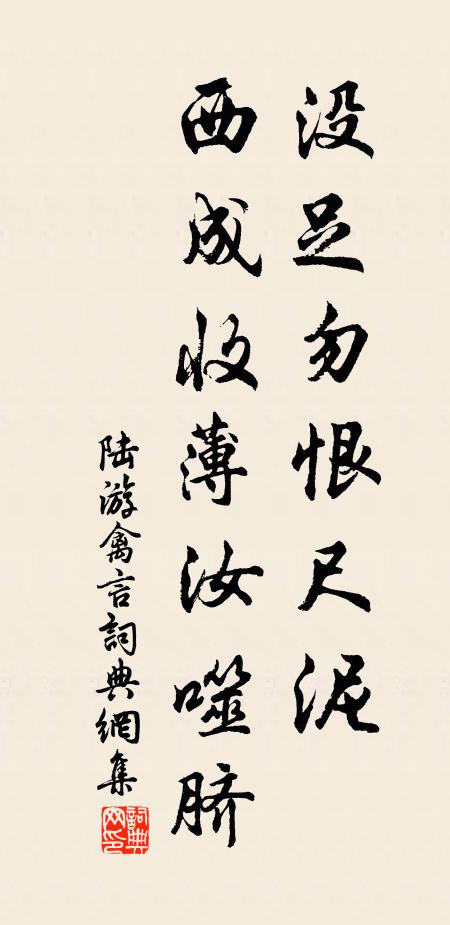 没足勿恨尺泥
西成收薄汝噬脐
陆游禽言詞典網集
詞典网印